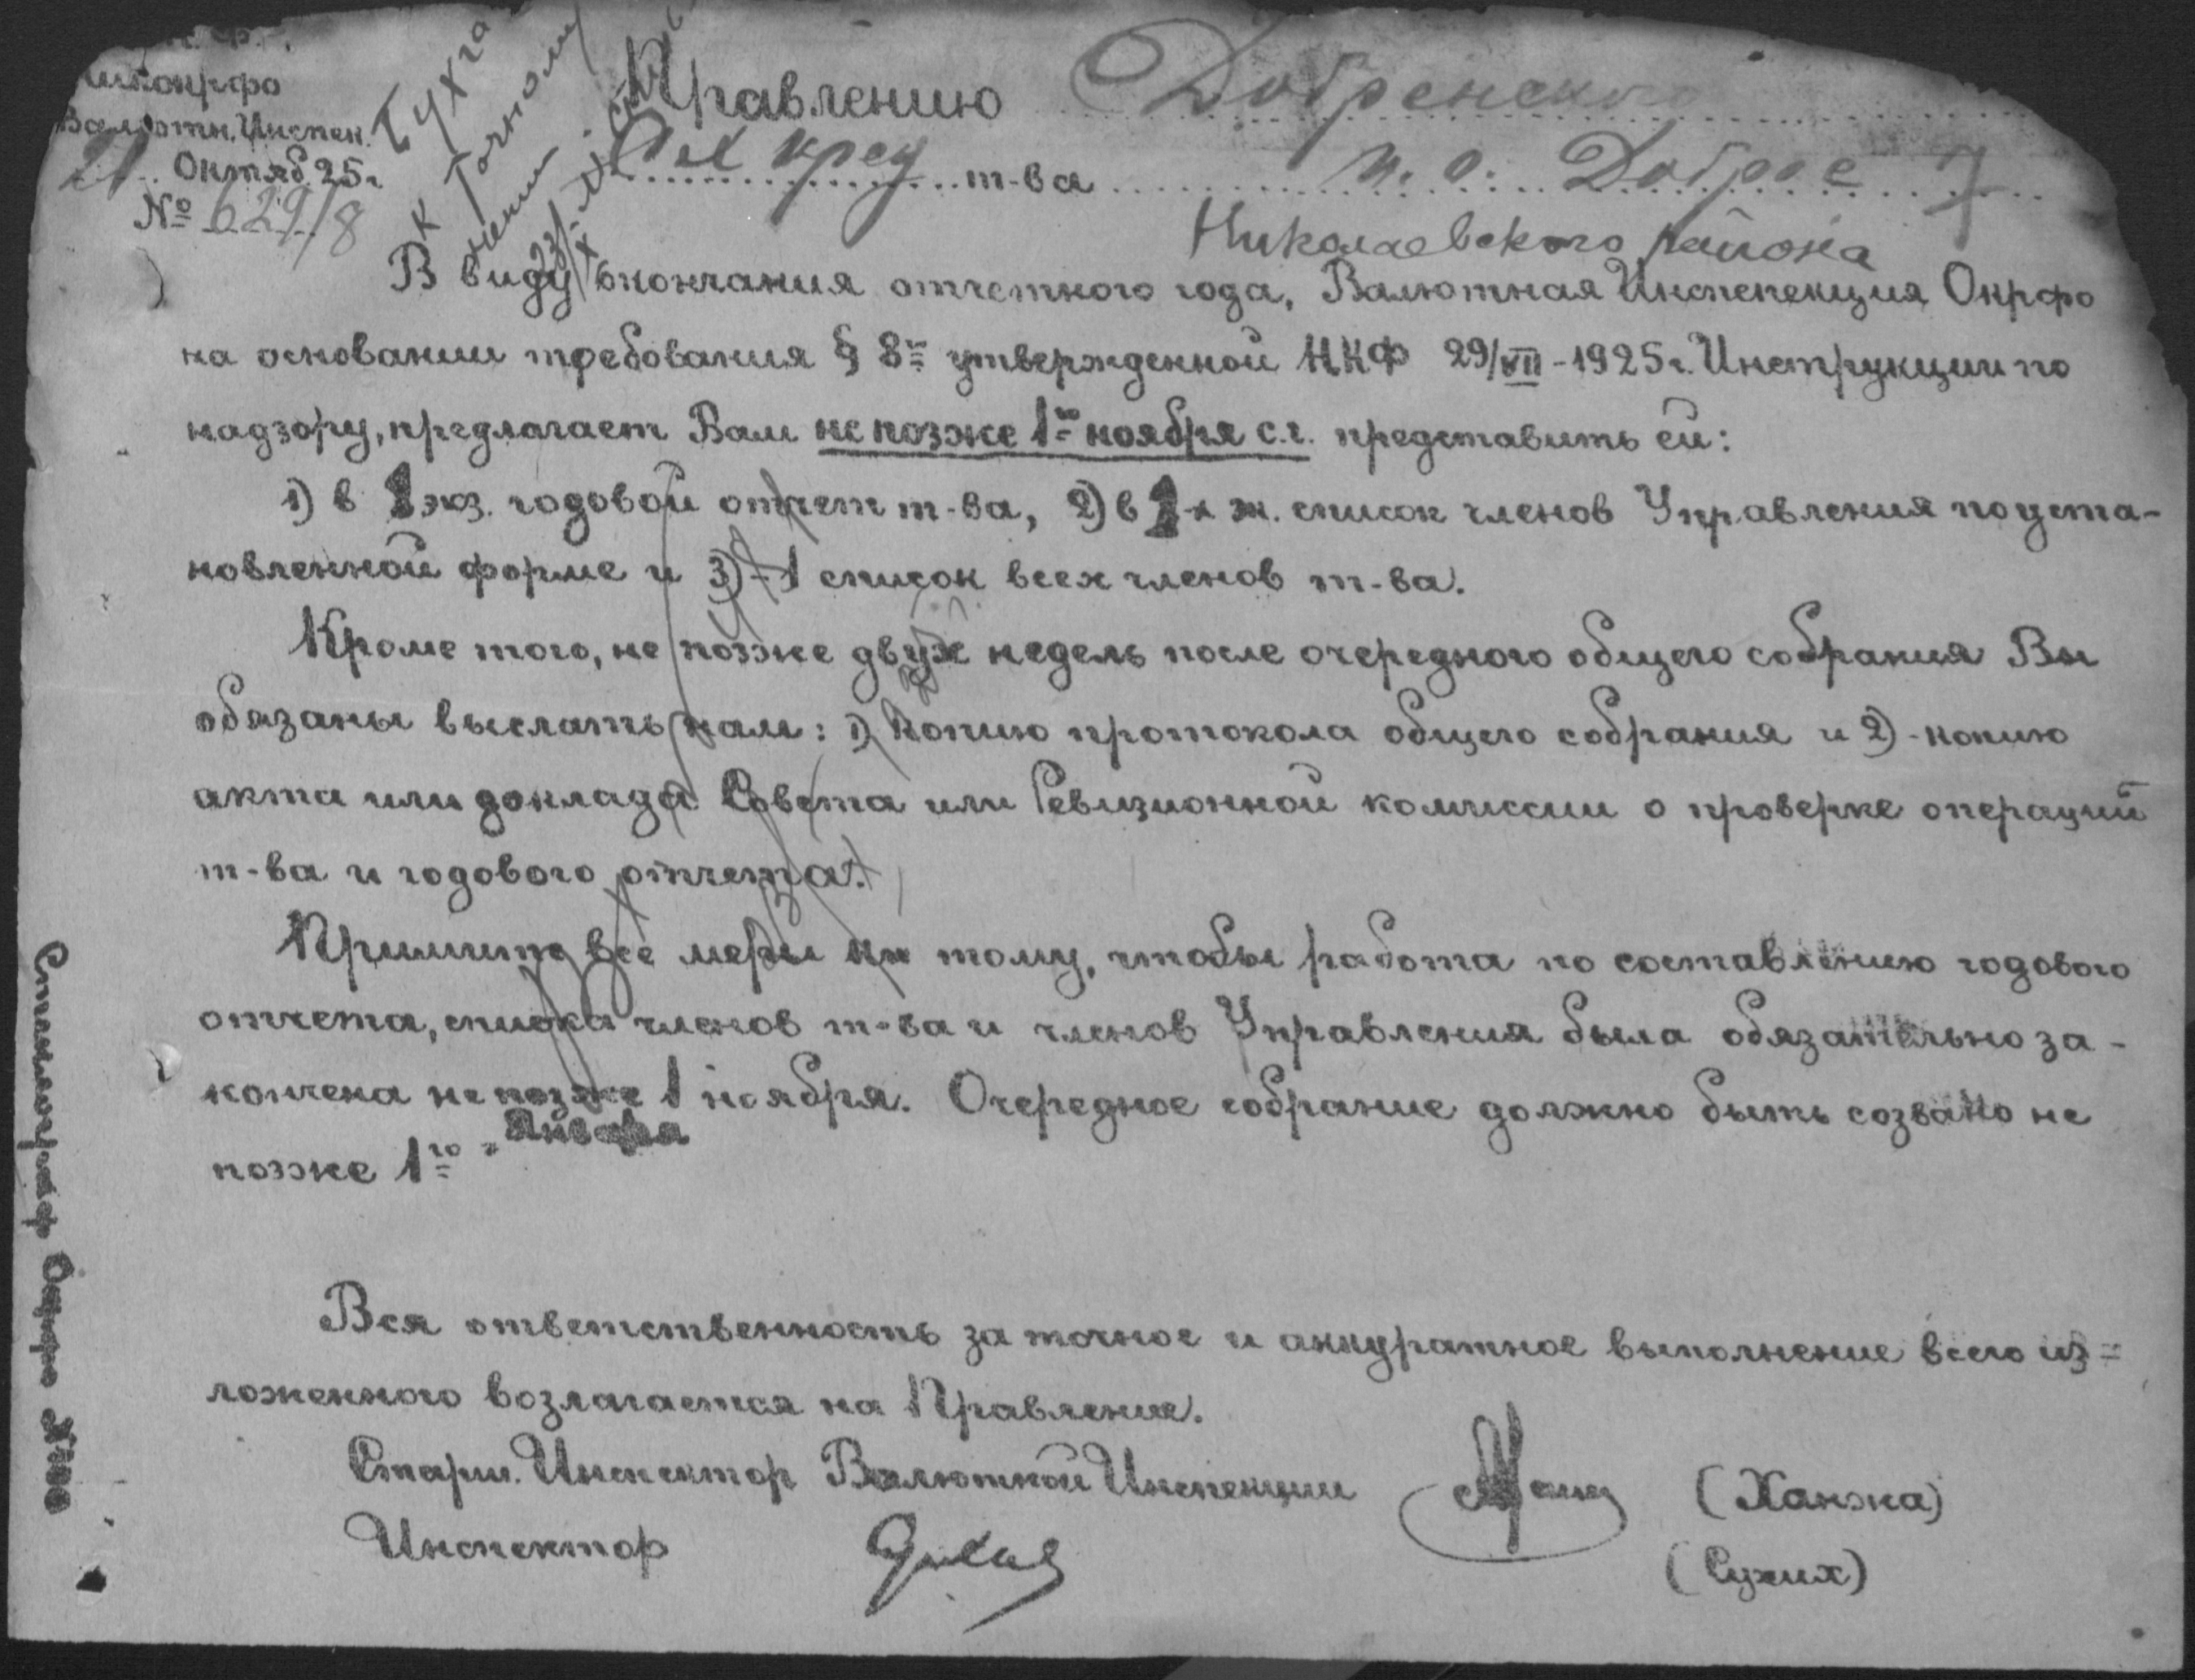 Валютн. Инспек.
21 Октяб. 25 г.
№ 629/8
Правлению Добренского
Сел кред т-ва п. о. Доброе 7
Николаевского района
В виду окончания отчетного года, Валютная Инспепекция Окрфо
на основании требования § 8го утвержденной НКФ 29/VII-1925 г. Инструкции по
надзору, предлагает Вам не позже 1го ноября с.г. представить ей:
1) в 1 экз. годовой отчет т-ва, 2) в 1-х эк. список членов Управления по уста-
новленной форме и 3) - 1 список всех членов т-ва.
Кроме того, не позже двух недель после очередного общего собрания Вы
обязаны выслать нам: 1) Копию протокола общего собрания и 2) - копию
акта или доклада Совета или Ревизионной комиссии о проверке операций
т-ва и годового отчета.
Примите все меры к тому, чтобы работа по составлению годового
отчета, списка членов т-ва и членов Управления была обязательно за-
кончена не позже 1 ноября. Очередное собрание должно быть созвано не
позже 1го Января
Вся ответственность за точное и аккуратное выполнение всего из-
ложенного возлагается на Правление.
Старш. Инспектор Валютной Инспекции (Ханжа)
Инспектор (Сухих)
Стеклограф Окрфо